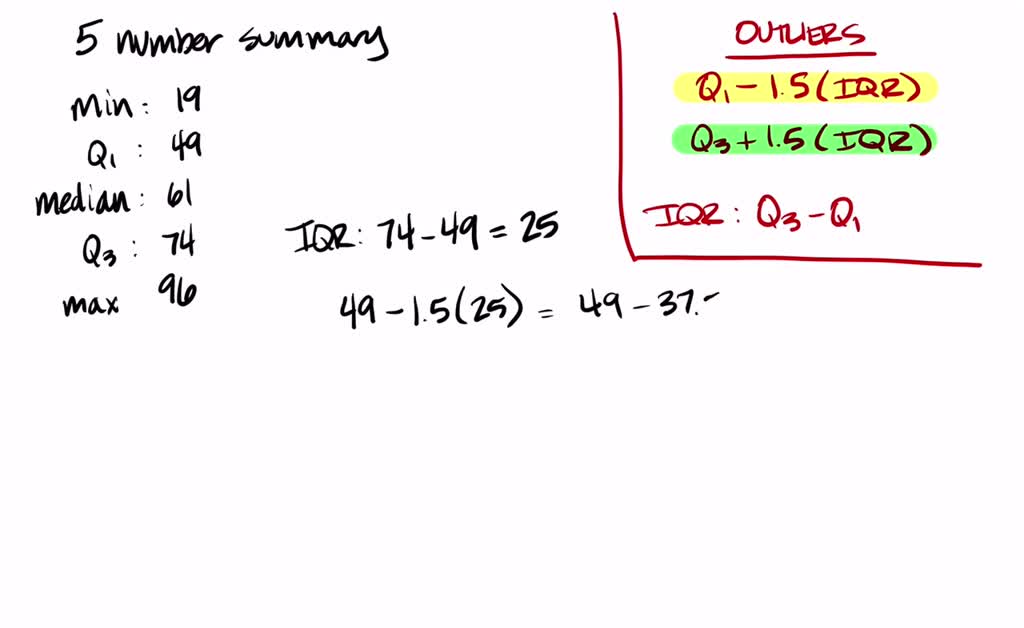 5 number summary
min: 19
Q1: 49
median: 61
Q3: 74
max 96
IQR: 74-49=25
49-1.5(25) = 49-37.
OUTLIERS
Q1-1.5(IQR)
Q3+1.5(IQR)
IQR: Q3-Q1